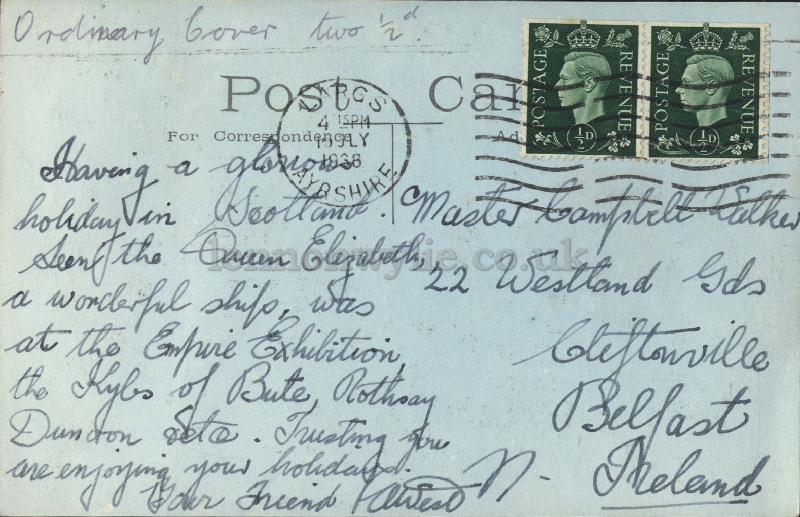 Ordinary Cover two ½d.
Post Card
For Correspondence
Ad
LARGS
4 15PM
19 JLY
1938
AYRSHIRE
POSTAGE REVENUE
½D
POSTAGE REVENUE
½D
Having a glorious
holiday in Scotland.
Seen the Queen Elizabeth,
a wonderful ship, was
at the Empire Exhibition,
the Kyles of Bute, Rothsay
Dunoon etc. Trusting you
are enjoying your holidays.
Your Friend AWest
Master Campbell Walker
22 Westland Gds
Cliftonville
Belfast
N. Ireland
lennoxwylie.co.uk